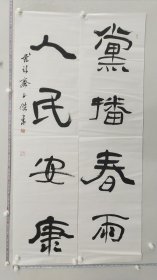 黨播春雨
人民安康